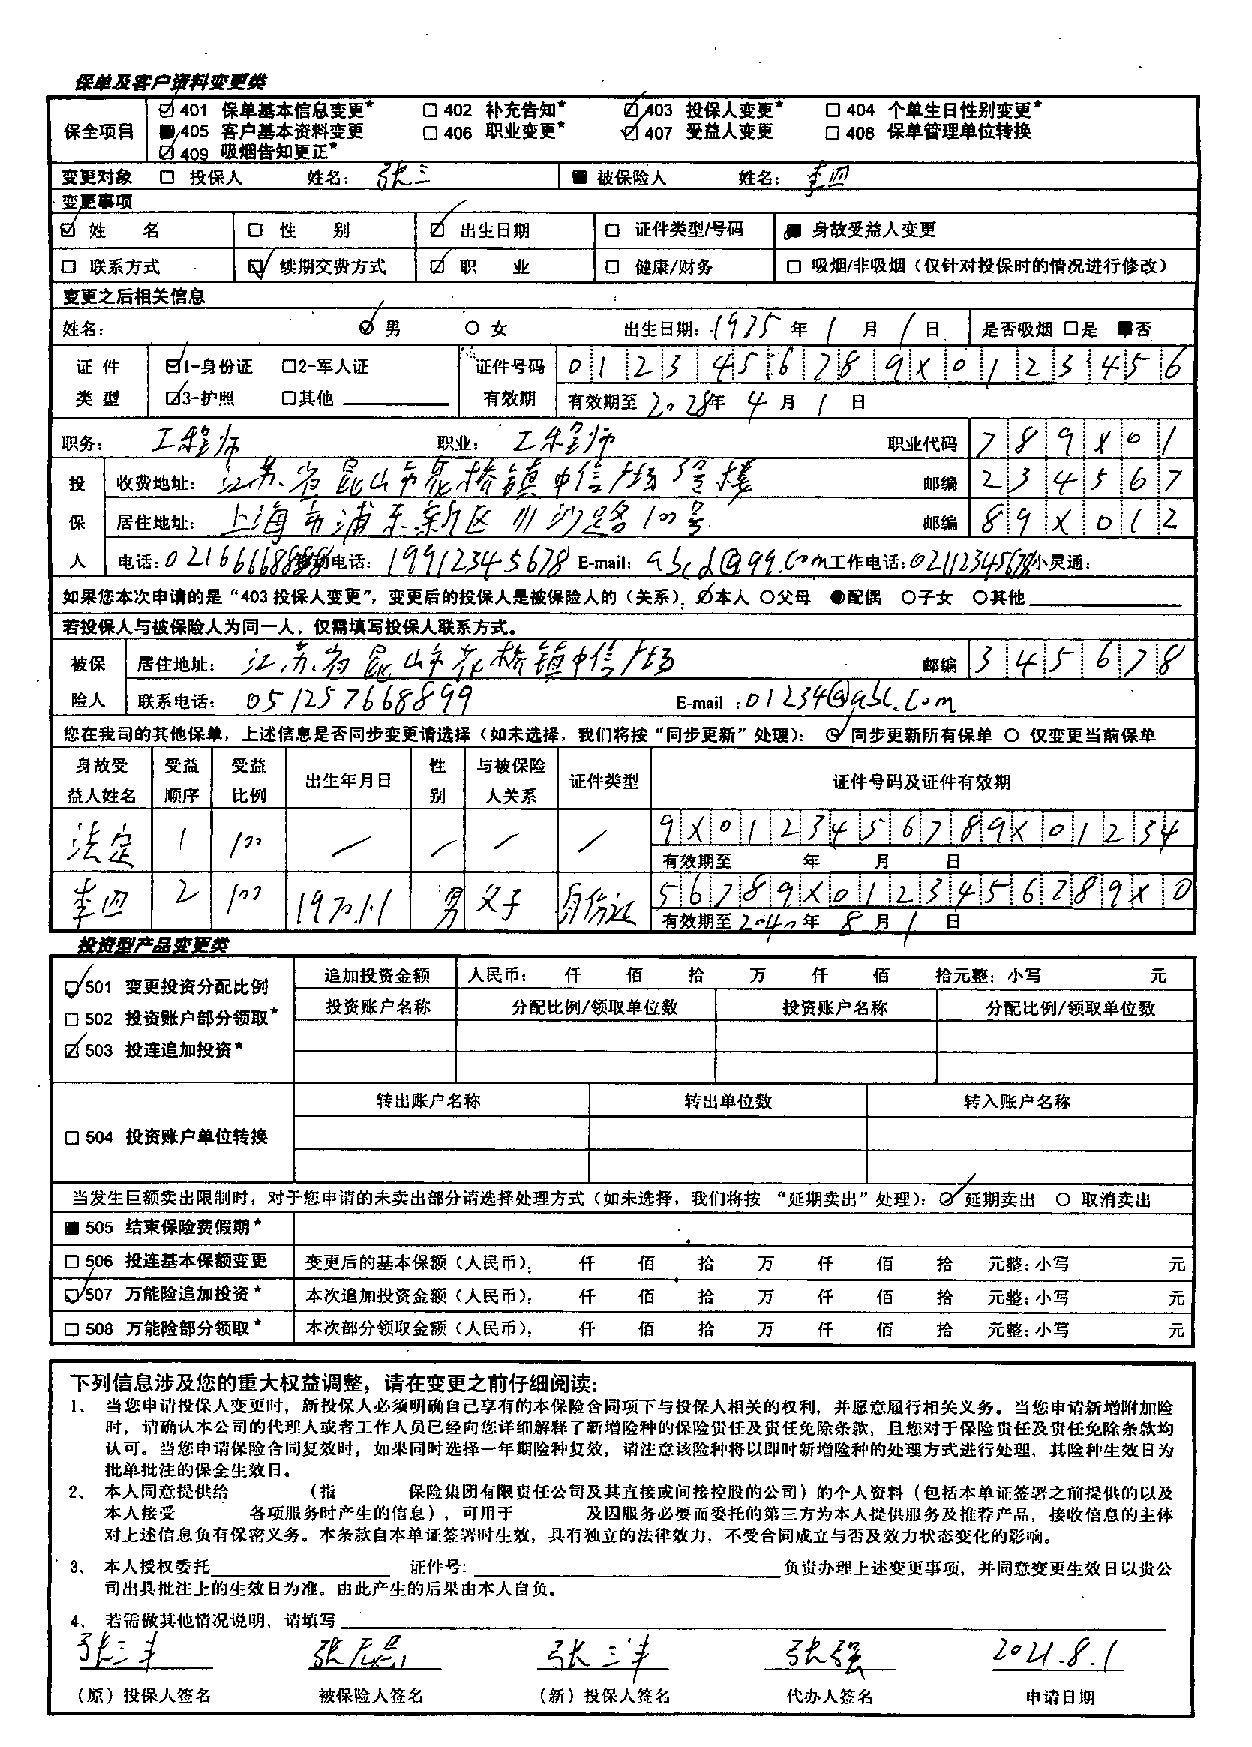 保单及客户资料变更类
保全项目
☑ 401 保单基本信息变更* □ 402 补充告知* ☑ 403 投保人变更* □ 404 个单生日性别变更*
■ 405 客户基本资料变更 □ 406 职业变更* ☑ 407 受益人变更 □ 408 保单管理单位转换
☑ 409 吸烟告知更正*
变更对象 □ 投保人 姓名: 张三 ■ 被保险人 姓名: 李四
变更事项
☑ 姓 名 □ 性 别 ☑ 出生日期 □ 证件类型/号码 ■ 身故受益人变更
□ 联系方式 ☑ 续期交费方式 ☑ 职 业 □ 健康/财务 □ 吸烟/非吸烟(仅针对投保时的情况进行修改)
变更之后相关信息
姓名: ☑ 男 ○ 女 出生日期: 1975 年 1 月 1 日 是否吸烟 □是 ■否
证 件 类 型 ☑1-身份证 □2-军人证 证件号码 0123456789X0123456
☑3-护照 □其他 有效期 有效期至 2028年 4 月 1 日
职务: 工程师 职业: 工程师 职业代码 789X01
投保人 收费地址: 江苏省昆山市花桥镇中信广场3号楼 邮编 234567
居住地址: 上海市浦东新区川沙路100号 邮编 89X012
电话: 02166668888 移动电话: 19912345678 E-mail: abcd@qq.com 工作电话: 02112345678 小灵通:
如果您本次申请的是“403 投保人变更”, 变更后的投保人是被保险人的(关系). ☑本人 ○父母 ●配偶 ○子女 ○其他
若投保人与被保险人为同一人, 仅需填写投保人联系方式。
被保险人 居住地址: 江苏省昆山市花桥镇中信广场 邮编 345678
联系电话: 051257668899 E-mail : 01234@abc.com
您在我司的其他保单, 上述信息是否同步变更请选择(如未选择, 我们将按“同步更新”处理): ☑ 同步更新所有保单 ○ 仅变更当前保单
身故受益人姓名 受益顺序 受益比例 出生年月日 性别 与被保险人关系 证件类型 证件号码及证件有效期
法定 1 100 / / / / 9X0123456789X01234
有效期至 年 月 日
李四 2 100 1970.1.1 男 父子 身份证 56789X0123456789X0
有效期至 2040 年 8 月 1 日
投资型产品变更类
☑ 501 变更投资分配比例 追加投资金额 人民币: 仟 佰 拾 万 仟 佰 拾元整: 小写 元
□ 502 投资账户部分领取* 投资账户名称 分配比例/领取单位数 投资账户名称 分配比例/领取单位数
☑ 503 投连追加投资*
□ 504 投资账户单位转换 转出账户名称 转出单位数 转入账户名称
当发生巨额卖出限制时, 对于您申请的未卖出部分请选择处理方式(如未选择, 我们将按 “延期卖出”处理): ☑ 延期卖出 ○ 取消卖出
■ 505 结束保险费假期*
□ 506 投连基本保额变更 变更后的基本保额(人民币): 仟 佰 拾 万 仟 佰 拾 元整: 小写 元
☑ 507 万能险追加投资* 本次追加投资金额(人民币): 仟 佰 拾 万 仟 佰 拾 元整: 小写 元
□ 508 万能险部分领取* 本次部分领取金额(人民币): 仟 佰 拾 万 仟 佰 拾 元整: 小写 元
下列信息涉及您的重大权益调整, 请在变更之前仔细阅读:
1、 当您申请投保人变更时, 新投保人必须明确自己享有的本保险合同项下与投保人相关的权利, 并愿意履行相关义务。当您申请新增附加险
时, 请确认本公司的代理人或者工作人员已经向您详细解释了新增险种的保险责任及责任免除条款, 且您对于保险责任及责任免除条款均
认可。当您申请保险合同复效时, 如果同时选择一年期险种复效, 请注意该险种将以即时新增险种的处理方式进行处理, 其险种生效日为
批单批注的保全生效日。
2、 本人同意提供给 (指 保险集团有限责任公司及其直接或间接控股的公司) 的个人资料(包括本单证签署之前提供的以及
本人接受 各项服务时产生的信息), 可用于 及因服务必要而委托的第三方为本人提供服务及推荐产品, 接收信息的主体
对上述信息负有保密义务。本条款自本单证签署时生效, 具有独立的法律效力, 不受合同成立与否及效力状态变化的影响。
3、 本人授权委托 证件号: 负责办理上述变更事项, 并同意变更生效日以贵公
司出具批注上的生效日为准。由此产生的后果由本人自负。
4、 若需做其他情况说明, 请填写
张三丰 张无忌 张三丰 张强 2021.8.1
(原) 投保人签名 被保险人签名 (新) 投保人签名 代办人签名 申请日期